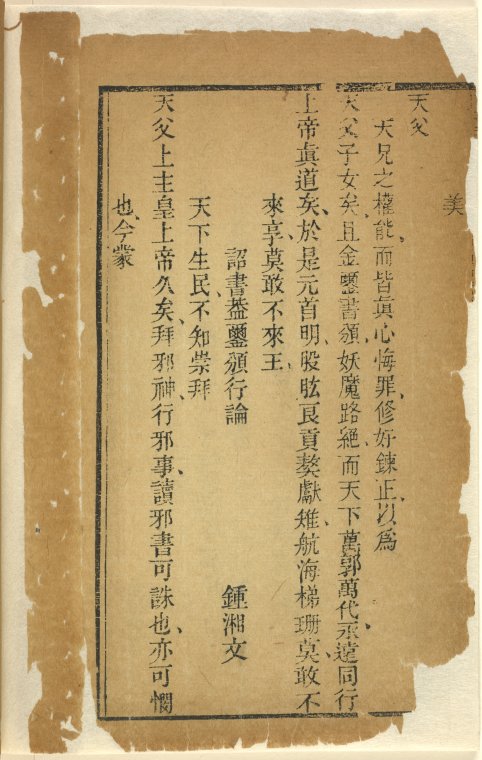 美
天父
天兄之權能、而皆真心悔罪、修好鍊正、以為
天父子女矣、且金璽書頒、妖魔路絕、而天下萬郭萬代、永遠同行
上帝真道矣、於是元首明、股肱良、貢獒獻雉、航海梯珊、莫敢不
來享、莫敢不來王、
詔書蓋璽頒行論 鍾湘文
天下生民、不知崇拜
天父上主皇上帝久矣、拜邪神、行邪事、讀邪書、可誅也、亦可憫
也、今蒙